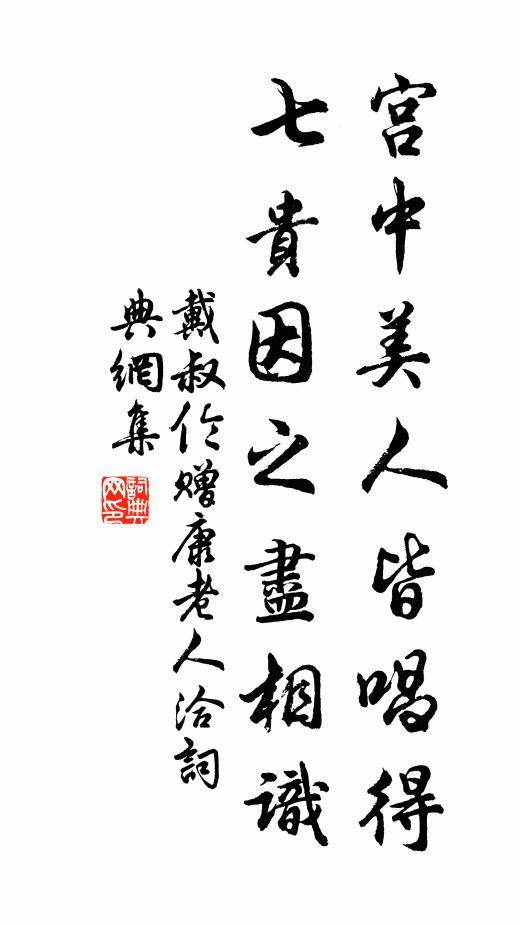 宫中美人皆唱得
七貴因之盡相識
戴叔伦赠康老人洽詞
典網集
詞典
网印